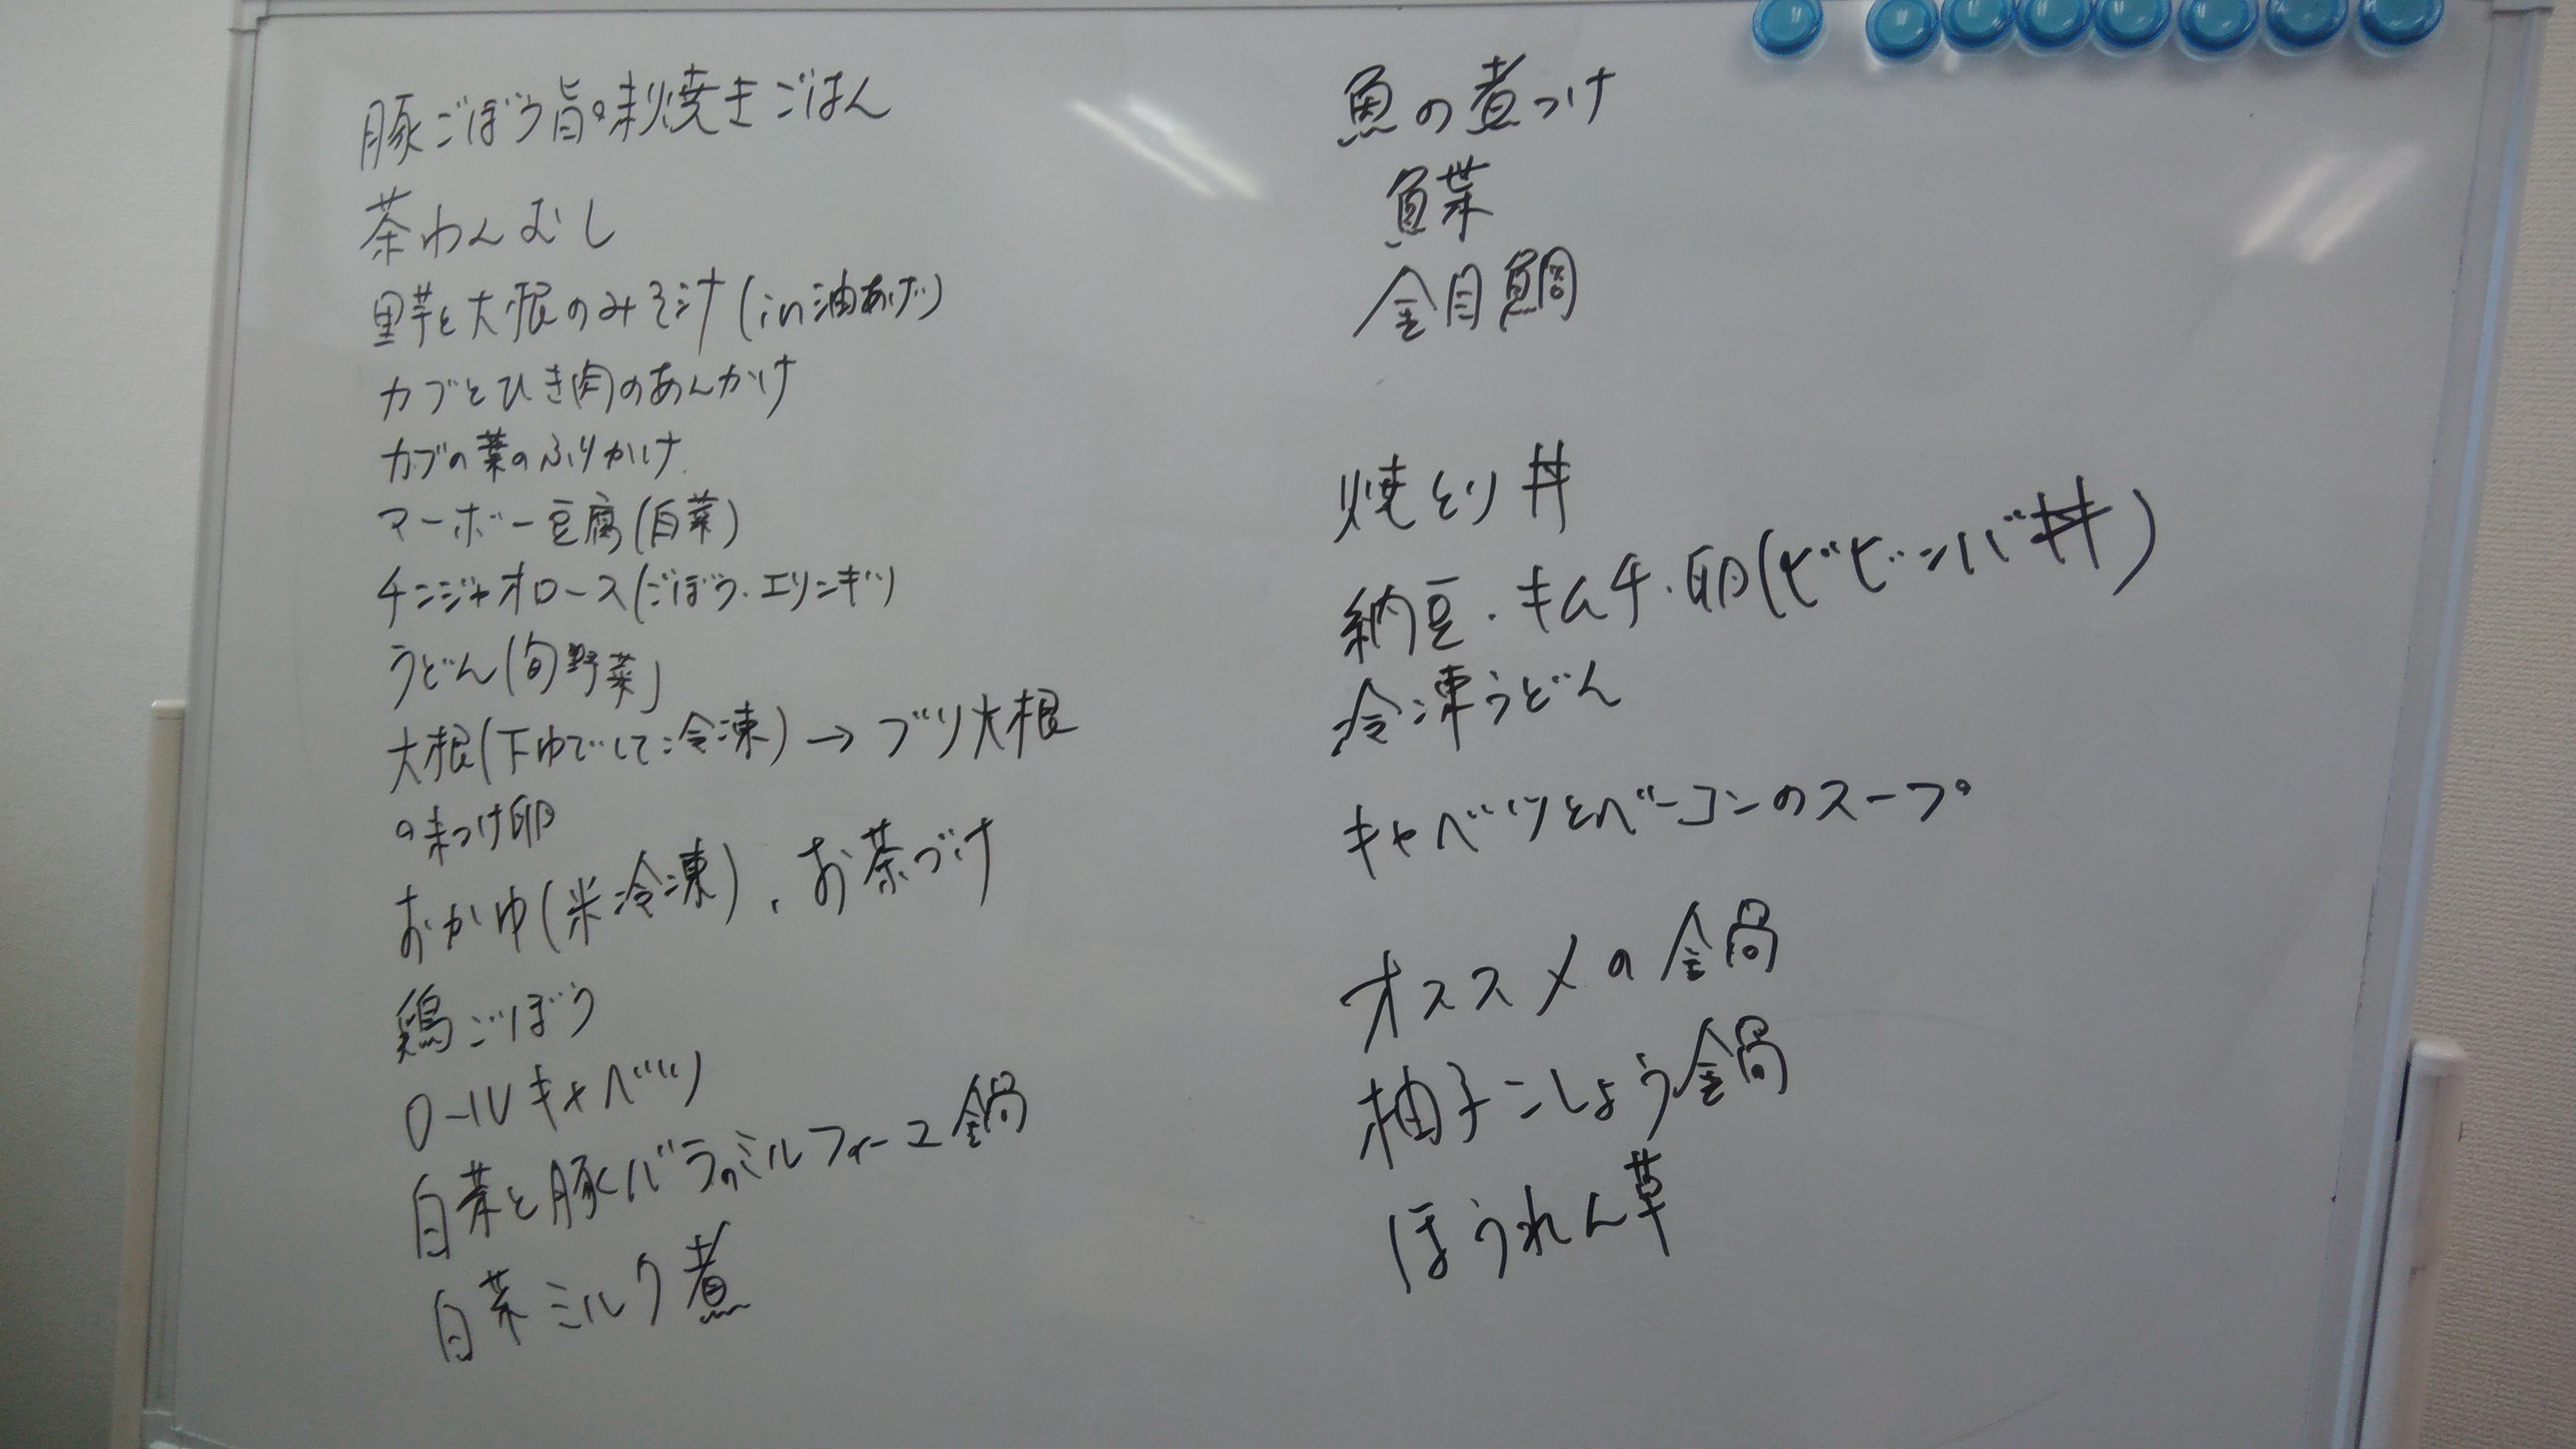 豚ごぼう旨味焼きごはん
茶わんむし
里芋と大根のみそ汁(in油あげ)
カブとひき肉のあんかけ
カブの葉のふりかけ
マーボー豆腐(白菜)
チンジャオロース(ごぼう・エリンギ)
うどん(旬野菜)
大根(下ゆでして冷凍)→ブリ大根
味つけ卵
おかゆ(米冷凍)、お茶づけ
鶏ごぼう
ロールキャベツ
白菜と豚バラのミルフィーユ鍋
白菜ミルク煮
魚の煮つけ
鰈
金目鯛
焼とり丼
納豆・キムチ・卵(ビビンバ丼)
冷凍うどん
キャベツとベーコンのスープ
オススメの鍋
柚子こしょう鍋
ほうれん草